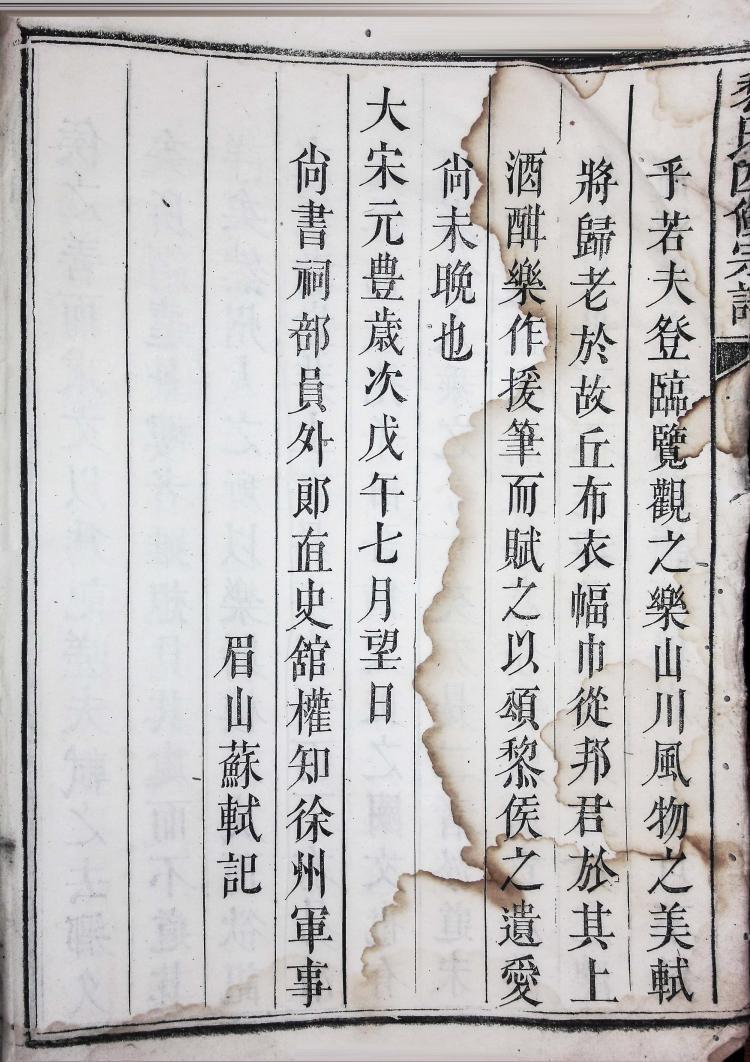 黎氏四修宗譜
乎若夫登臨覽觀之樂山川風物之美軾
將歸老於故丘布衣幅巾從邦君於其上
酒酣樂作援筆而賦之以頌黎侯之遺愛
尙未晚也
大宋元豊歲次戊午七月望日
尙書祠部員外郎直史館權知徐州軍事
眉山蘇軾記